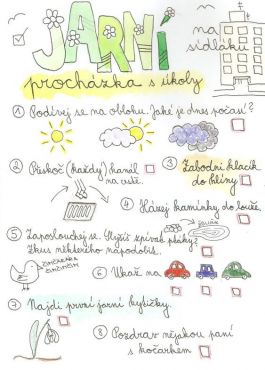 JARNÍ
na
sídlišti
procházka s úkoly
① Podívej se na oblohu. Jaké je dnes počasí?
② Přeskoč (každý) kanál
na cestě.
③ Zabodni klacík
do hlíny
④ Házej kamínky do louže.
⑤ Zaposlouchej se. Slyšíš zpívat ptáky?
Zkus některého napodobit.
⑥ Ukaž na
⑦ Najdi první jarní kytičky.
⑧ Pozdrav nějakou paní
s kočárkem